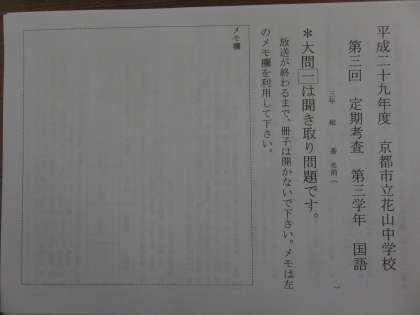 平成二十九年度　京都市立花山中学校
第三回　定期考査　第三学年　国語
三年　組　番　名前（　）
＊大問一は聞き取り問題です。
放送が終わるまで、冊子は開かないで下さい。メモは左
のメモ欄を利用して下さい。
メモ欄